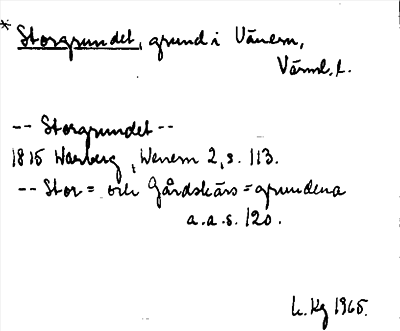 * Storgrundet, grund i Vänern,
Värml. l.
-- Storgrundet --
1815 Warberg, Wenern 2, s. 113.
-- Stor= och Gårdskärs=grundena
a.a.s. 120.
L. Kg 1965.